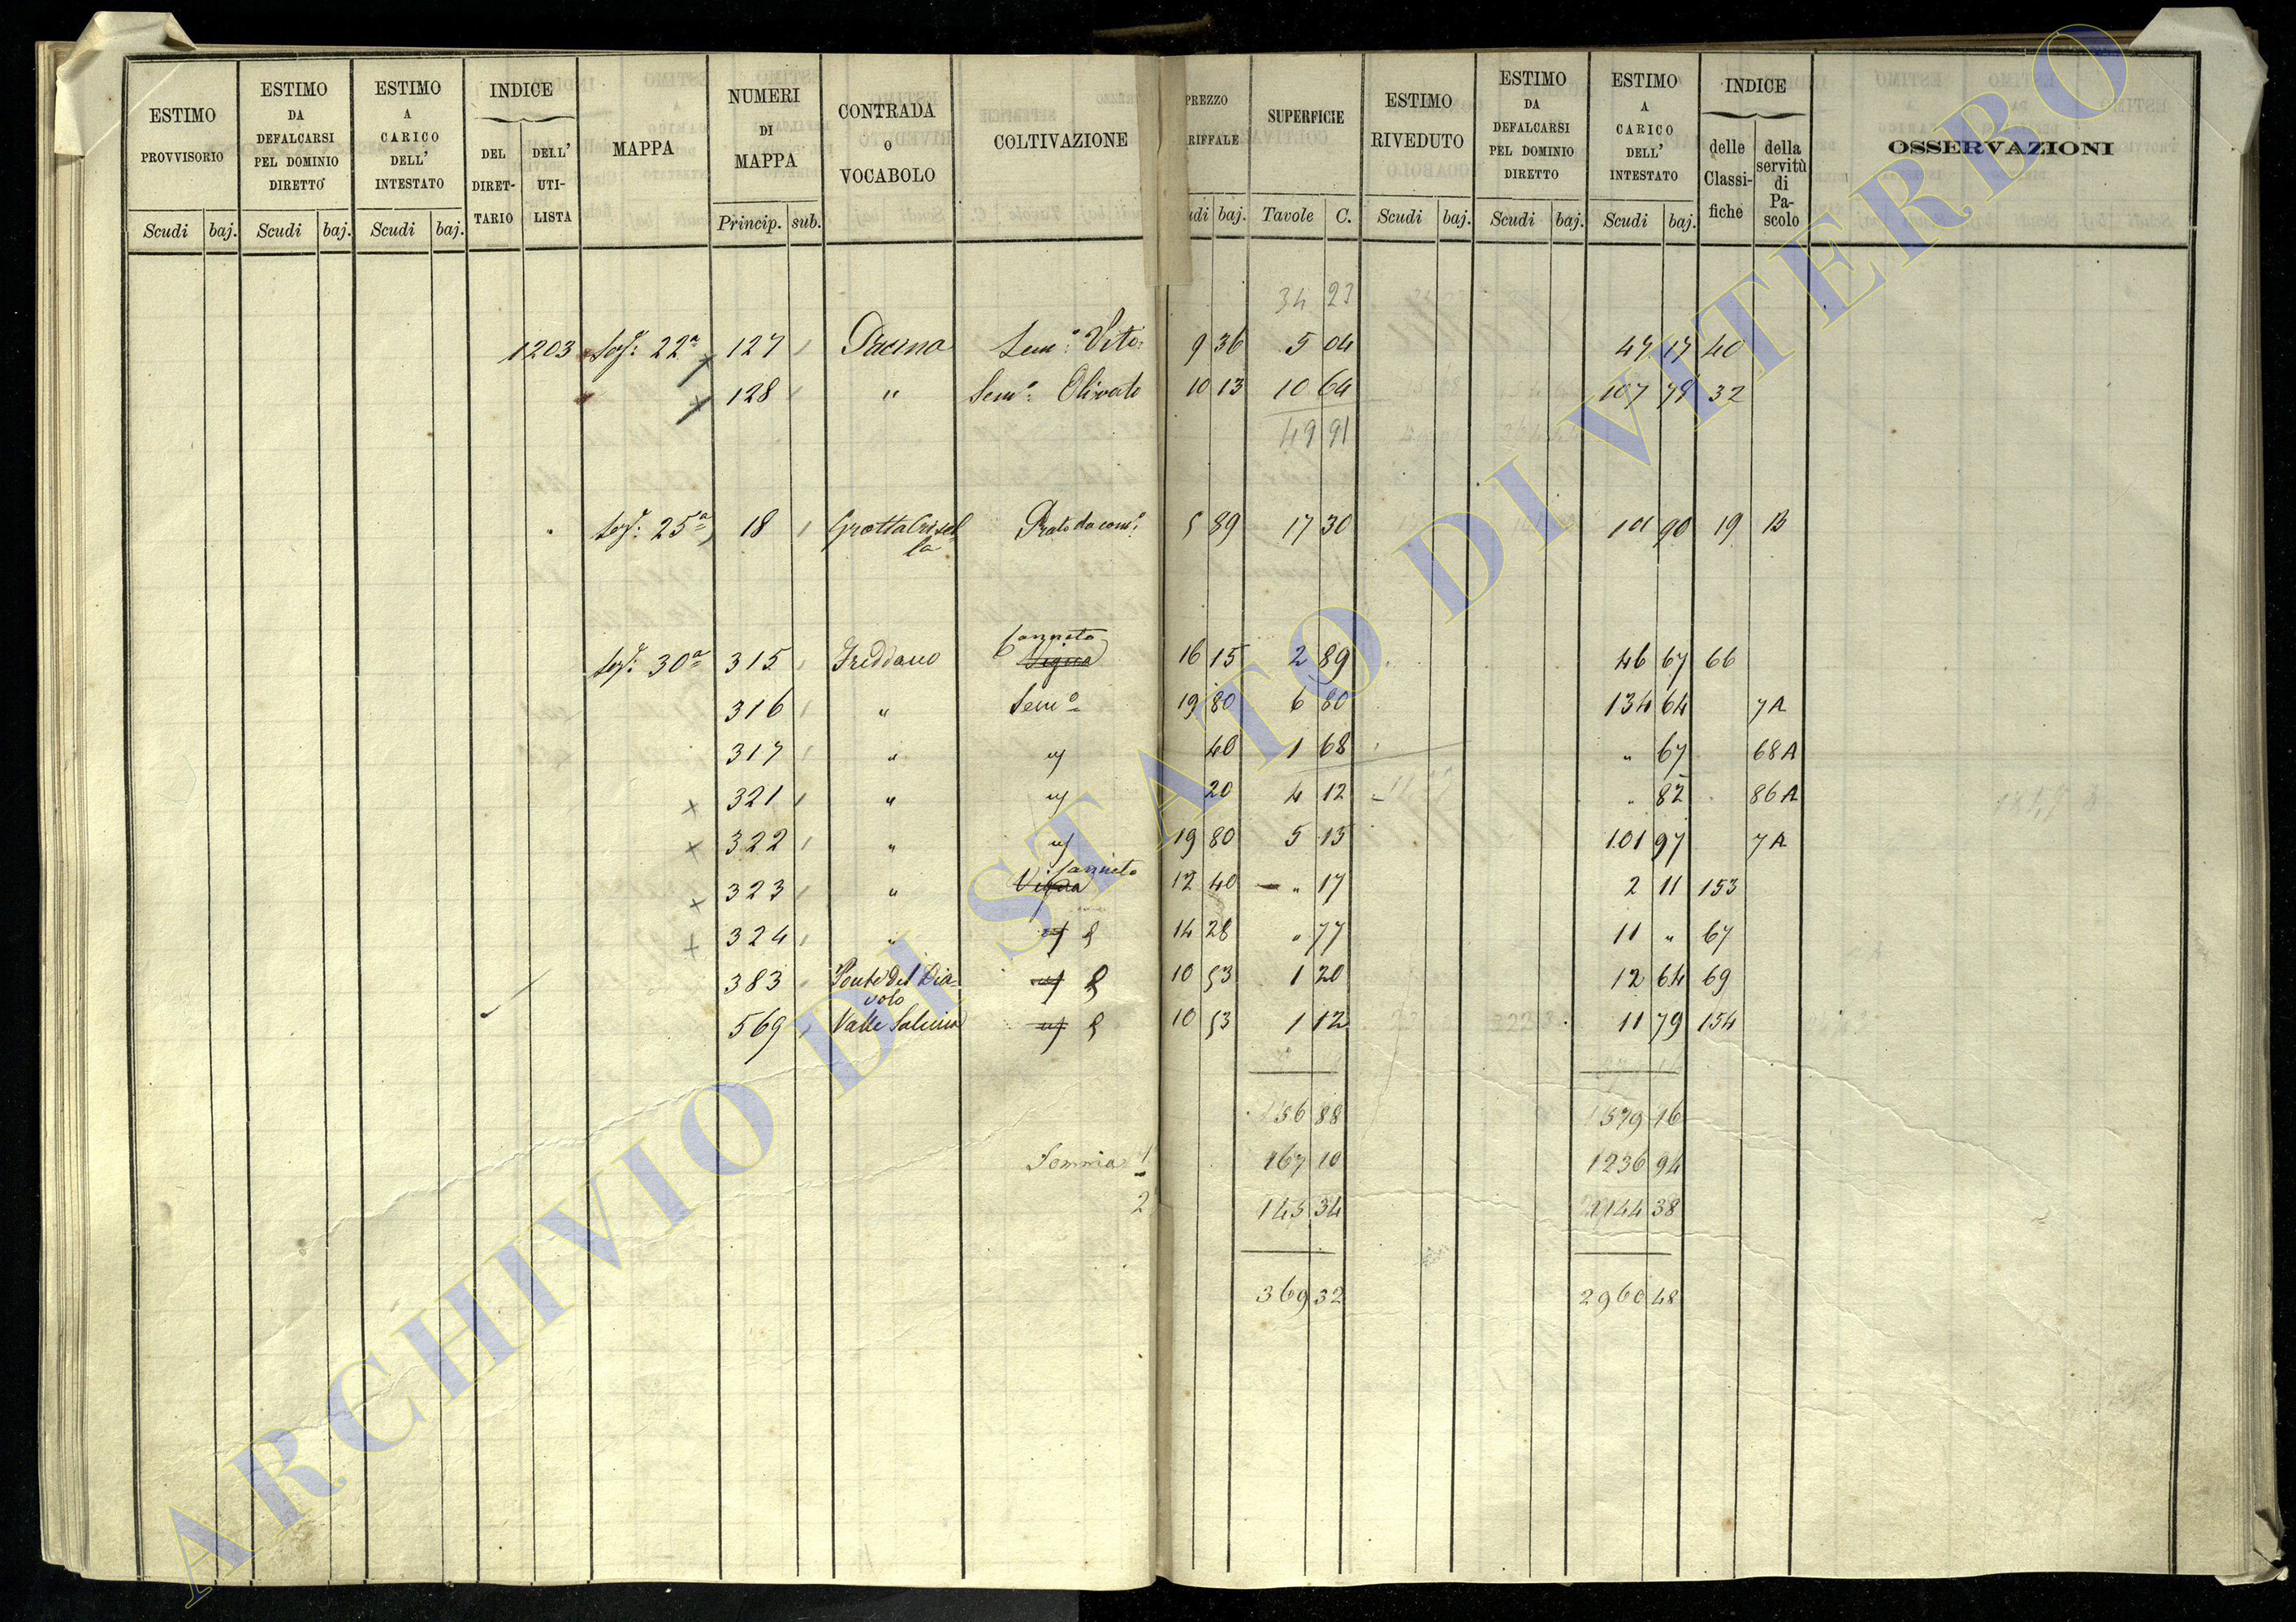 ESTIMO PROVVISORIO
Scudi baj.
ESTIMO DA DEFALCARSI PEL DOMINIO DIRETTO
Scudi baj.
ESTIMO A CARICO DELL' INTESTATO
Scudi baj.
INDICE
DEL DIRET- TARIO
DELL' UTI- LISTA
MAPPA
NUMERI DI MAPPA
Princip. sub.
CONTRADA O VOCABOLO
COLTIVAZIONE
PREZZO
RIFFALE
udi baj.
SUPERFICIE
Tavole C.
ESTIMO RIVEDUTO
Scudi baj.
ESTIMO DA DEFALCARSI PEL DOMINIO DIRETTO
Scudi baj.
ESTIMO A CARICO DELL' INTESTATO
Scudi baj.
INDICE
delle Classi- fiche
della servitù di Pa- scolo
OSSERVAZIONI
34 23
1203 22ª 127 Sem: Vito: 9 36 5 04 47 17 40
128 " Semo: Olivato 10 13 10 64 107 79 32
49 91
25ª 18 Prato da 5 89 17 30 101 90 19 B
Canneto
30ª 315 Freddano Vigna 16 15 2 89 46 67 66
316 " Semo 19 80 6 80 134 64 7A
317 " " 40 1 68 " 67 68A
x 321 " " 20 4 12 " 82 86A
x 322 " " 19 80 5 15 101 97 7A
Canneto
x 323 " Vigna 12 40 " 17 2 11 153
x 324 " " 14 28 " 77 11 " 67
383 Ponte del Dia-
volo 10 53 1 20 12 64 69
569 Valle 10 53 1 12 11 79 154
56 88 579 16
Somma 1 167 10 1236 94
2 145 34 1144 38
369 32 2960 48
ARCHIVIO DI STATO DI VITERBO